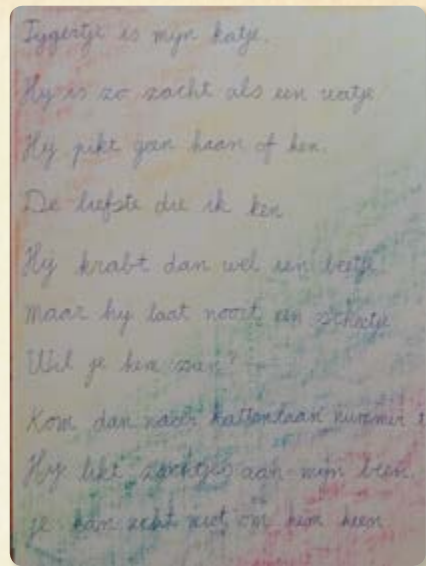 Tygertje is mijn katje.
Hy is zo zacht als een watje
Hij pikt geen haan of hen.
De liefste die ik ken
Hij krabt dan wel een beetje
maar hy laat nooit een scheetje
Wil je hem zien?
Kom dan naar kattenlaan nummer
Hij likt zachtjes aan mijn been.
je kan echt niet om hem heen